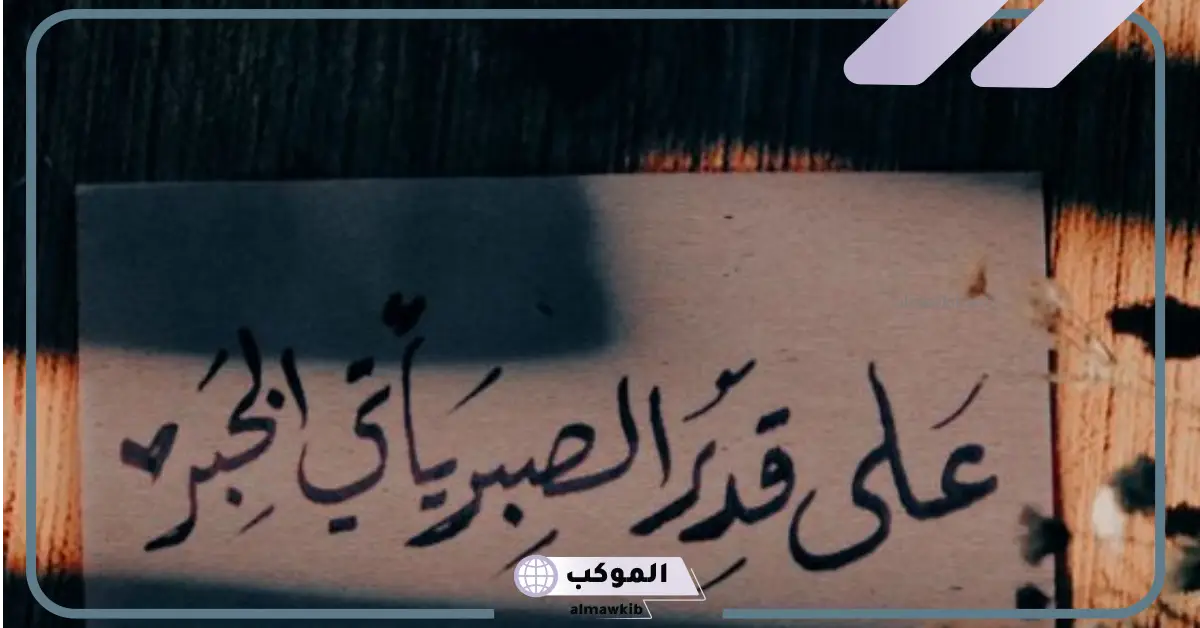 عَلى قدِرُ الصبِر يَأتي الجَبِر
الموكب
almawkib